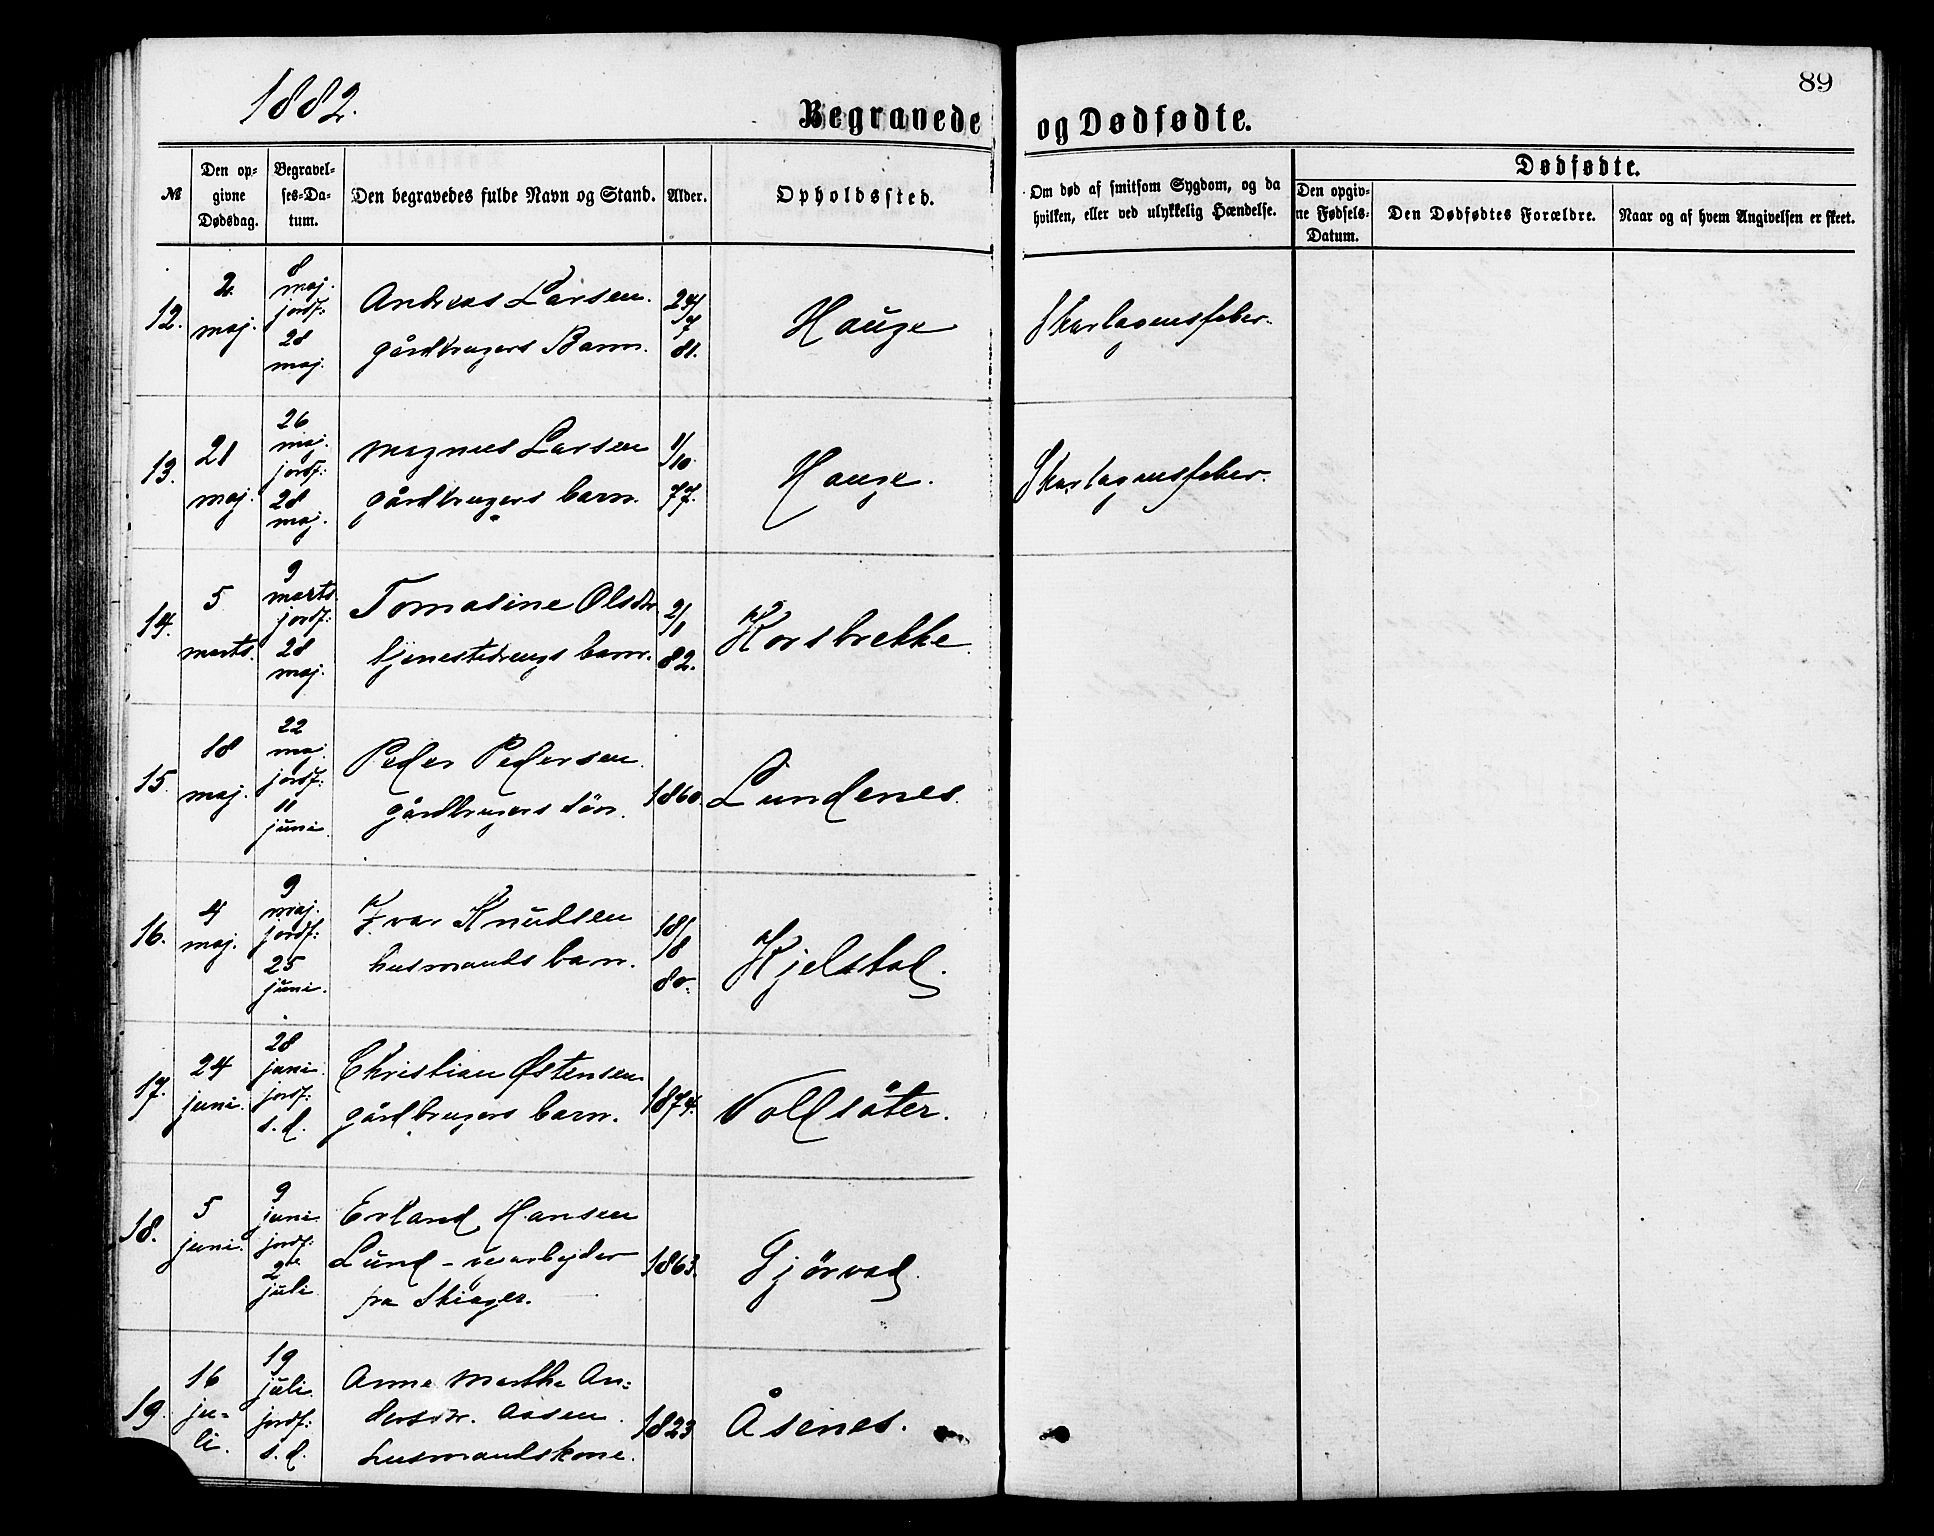 89
1882.
Begravede og Dødfødte.
№
Den opgivne Dødsdag.
Begravelses-Datum.
Den begravedes fulde Navn og Stand.
Alder.
Opholdssted.
Om død af smitsom Sygdom, og da hvilken, eller ved ulykkelig Hændelse.
Dødfødte.
Den opgivne Fødsels-Datum.
Den Dødfødtes Forældre.
Naar og af hvem Angivelsen er skeet.
12.
2.
maj.
8
maj.
jordf:
28
maj.
Andreas Larsen.
gårdbrugers Barn.
24/
7
81.
Hauge
Skarlagensfeber.
13.
21
maj.
26
maj.
jordf:
28
maj.
Magnus Larsen
gårdbrugers barn.
1/
10.
77.
Hauge.
Skarlagensfeber.
14.
5
marts.
9
marts.
jordf:
28
maj.
Tomasine Olsdtr
tjenestedrengs barn.
2/
1
82.
Korsbrekke
15.
18
maj.
22
maj
jordf:
11
juni.
Peder Pedersen.
gårdbrugers søn.
1860.
Lundenes.
16.
4
maj.
9
maj.
jordf:
25
juni.
Ivar Knudsen
husmands barn.
18/
8
80.
Kjelstad.
17.
24
juni.
28
juni.
jordf:
s. d.
Christian Østensen
gårdbrugers barn.
1874.
Voldsäter.
18.
5
juni.
9
juni
jordf:
2de
juli
Erland Hansen
Lund - vearbejder
fra Skiager.
1863.
Gjörvad.
19.
16
ju-
li.
19
juli.
jordf:
s. d.
Anne Marthe An-
dersdtr. Aasen.
husmandskone.
1823
Åsenes.